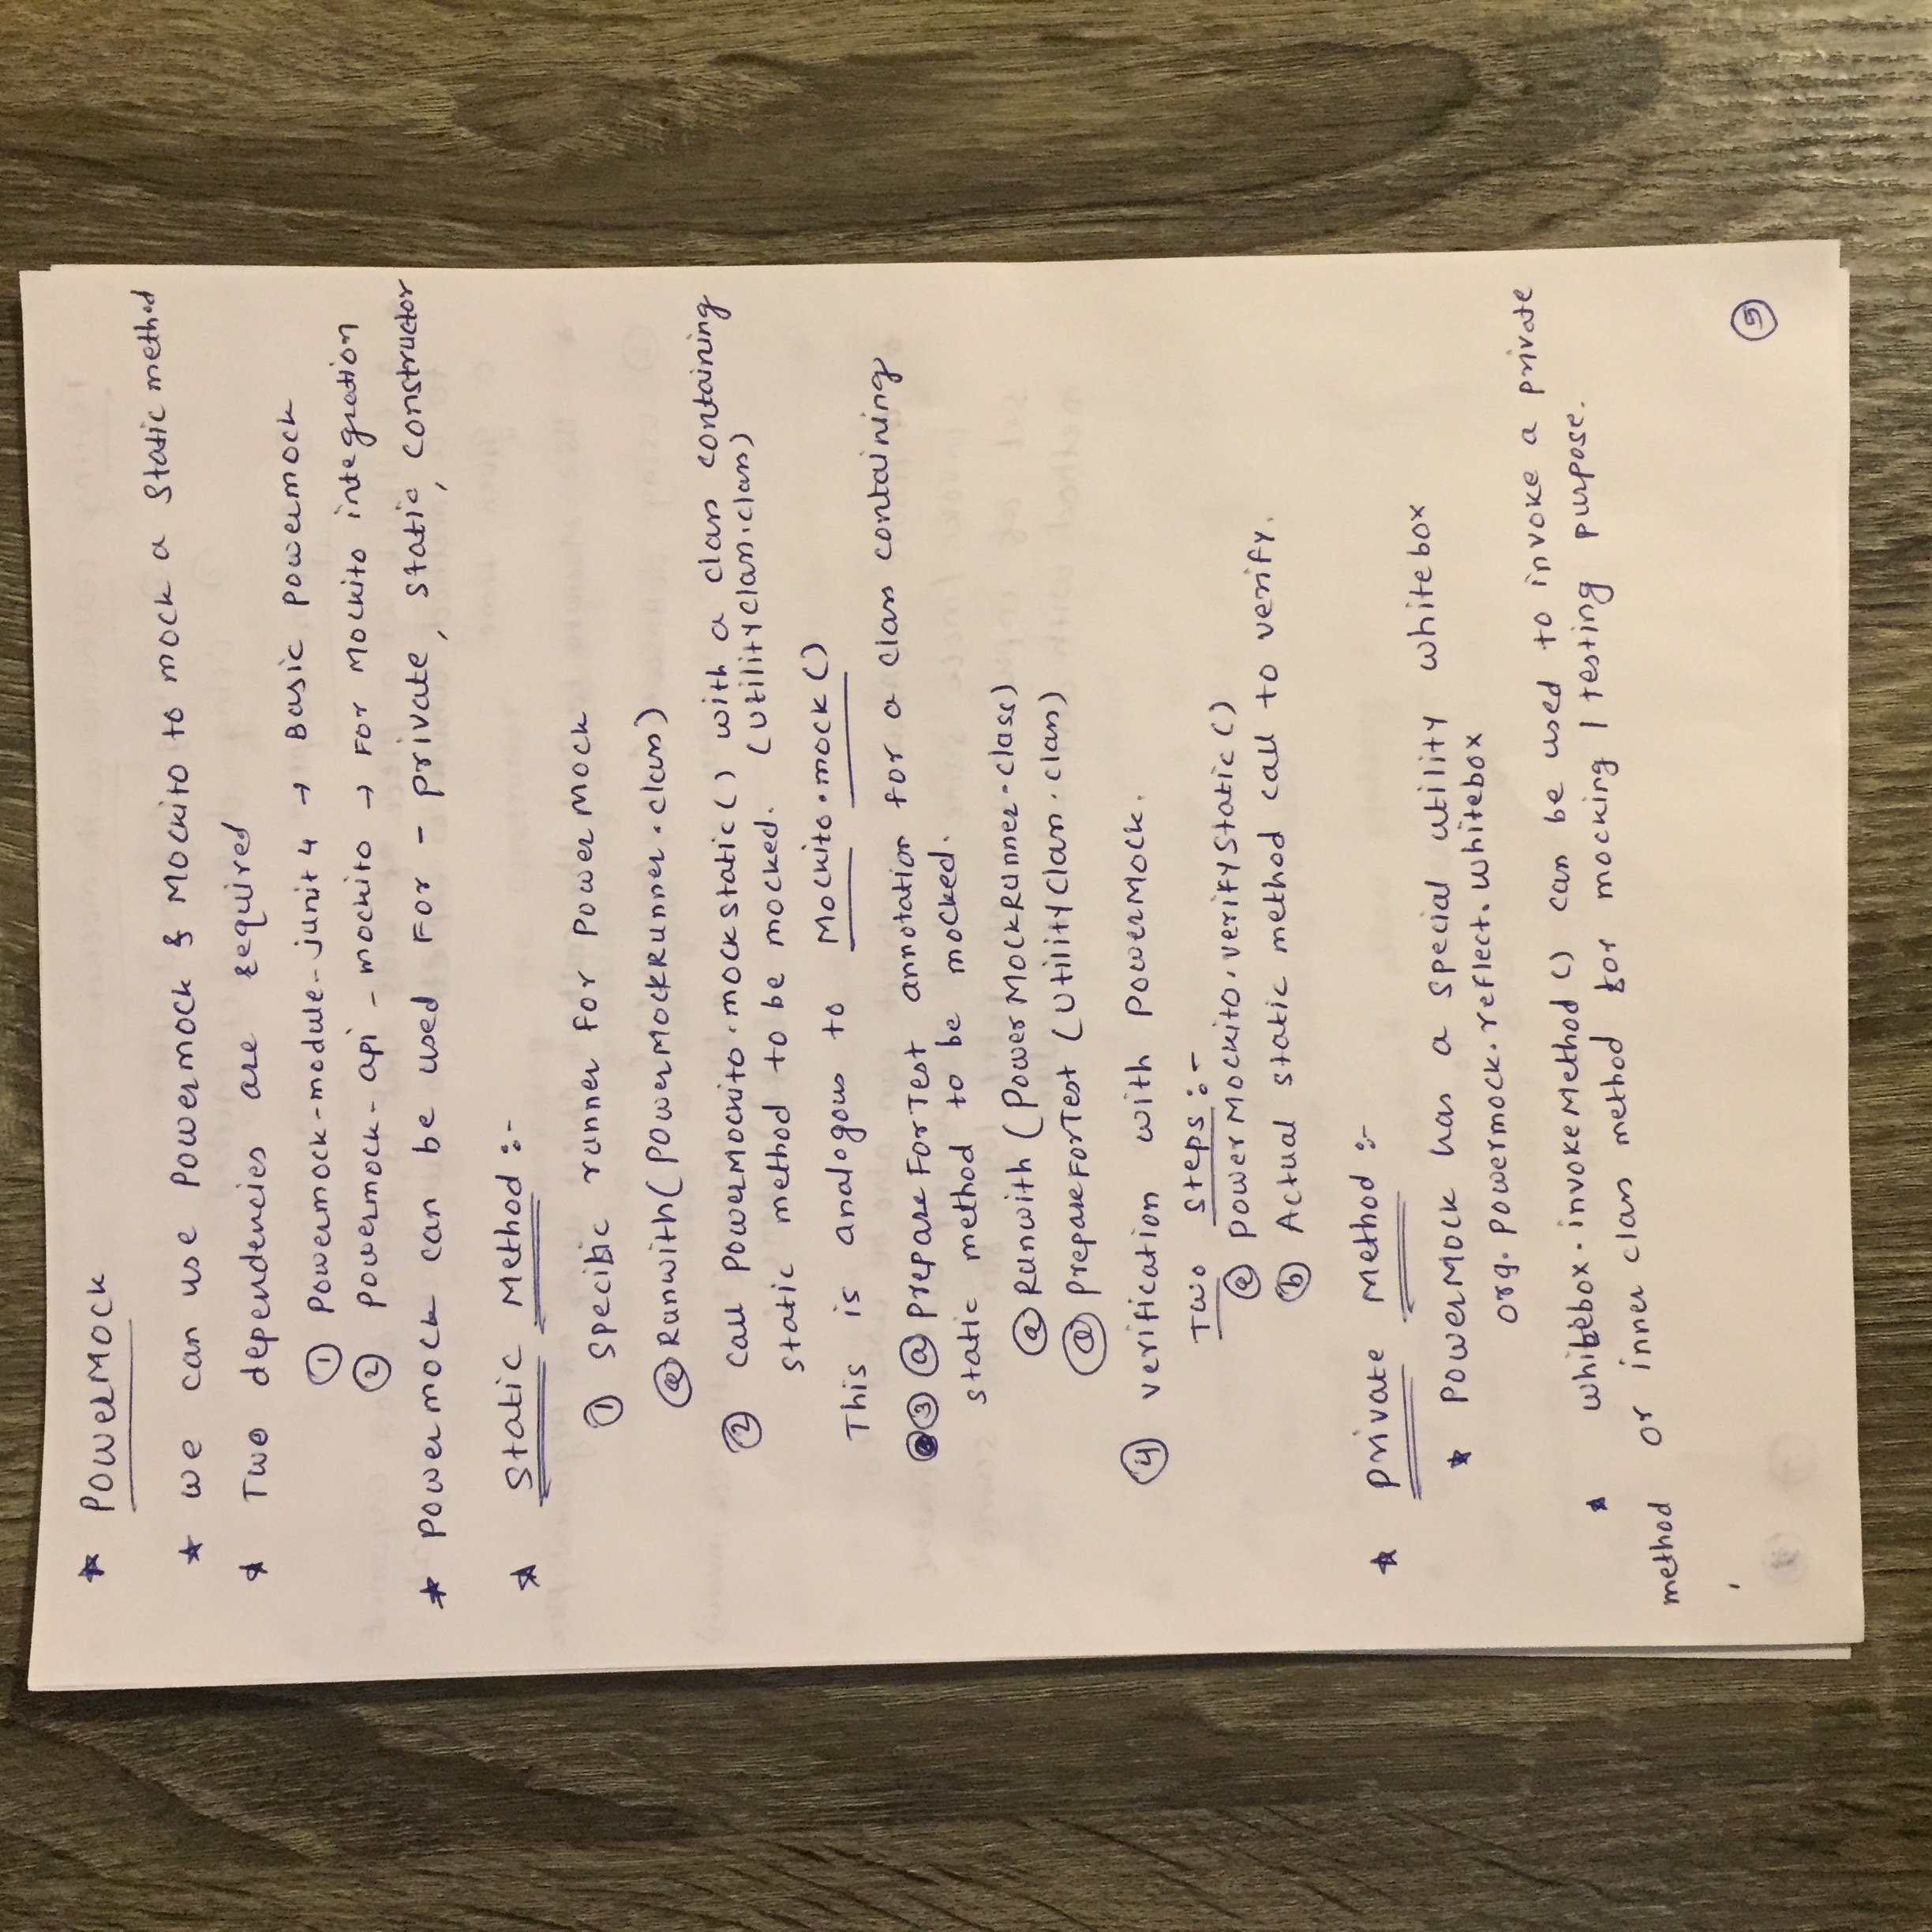 * PowerMock
* we can use Powermock & Mockito to mock a static method
* Two dependencies are required
① Powermock-module-junit 4 → Basic powermock
② powermock-api-mockito → For Mockito integration
* Powermock can be used For - private, static, constructor
* Static Method :-
① Specific runner for PowerMock
@RunWith(PowerMockRunner.class)
② Call PowerMockito.mockStatic() with a class containing
static method to be mocked. (UtilityClass.class)
This is analogous to Mockito.mock()
③ @PrepareForTest annotation for a class containing
static method to be mocked.
@RunWith (PowerMockRunner.class)
@PrepareForTest (UtilityClass.class)
④ verification with PowerMock.
Two steps :-
ⓐ PowerMockito.verifyStatic()
ⓑ Actual static method call to verify.
* Private Method :-
* PowerMock has a special utility whitebox
org.powermock.reflect.whitebox
* whitebox.invokeMethod () can be used to invoke a private
method or inner class method for mocking / testing purpose.
⑤